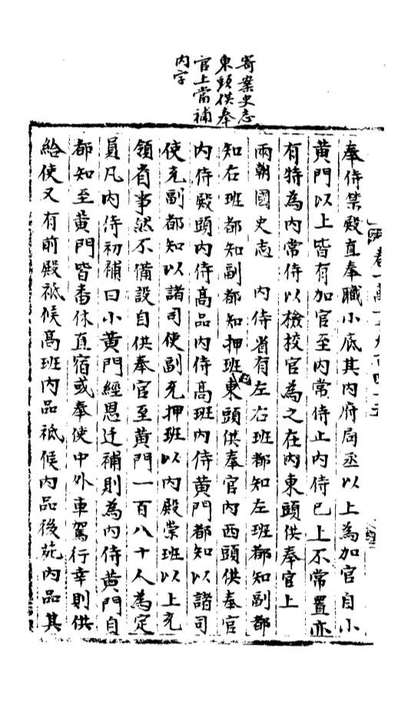 寄案史志
東頭供奉
官上當補
内字
奉侍禁殿直奉職小底其内府局丞以上為加官自小
黄門以上皆有加官至内常侍止内侍已上不常置亦
有特為内常侍以檢校官為之在内東頭供奉官上
兩朝國史志 内侍省有左右班都知左班都知副都
知右班都知副都知押班東頭供奉官内西頭供奉官
内侍殿頭内侍高品内侍高班内侍黄門都知以諸司
使充副都知以諸司使副充押班以内殿崇班以上充
領省事然不備設自供奉官至黄門一百八十人為定
員凡内侍初補曰小黄門經恩迁補則為内侍黄門自
都知至黄門皆番休直宿或奉使中外車駕行幸則供
給使又有前殿祗候高班内品祗候内品後苑内品其